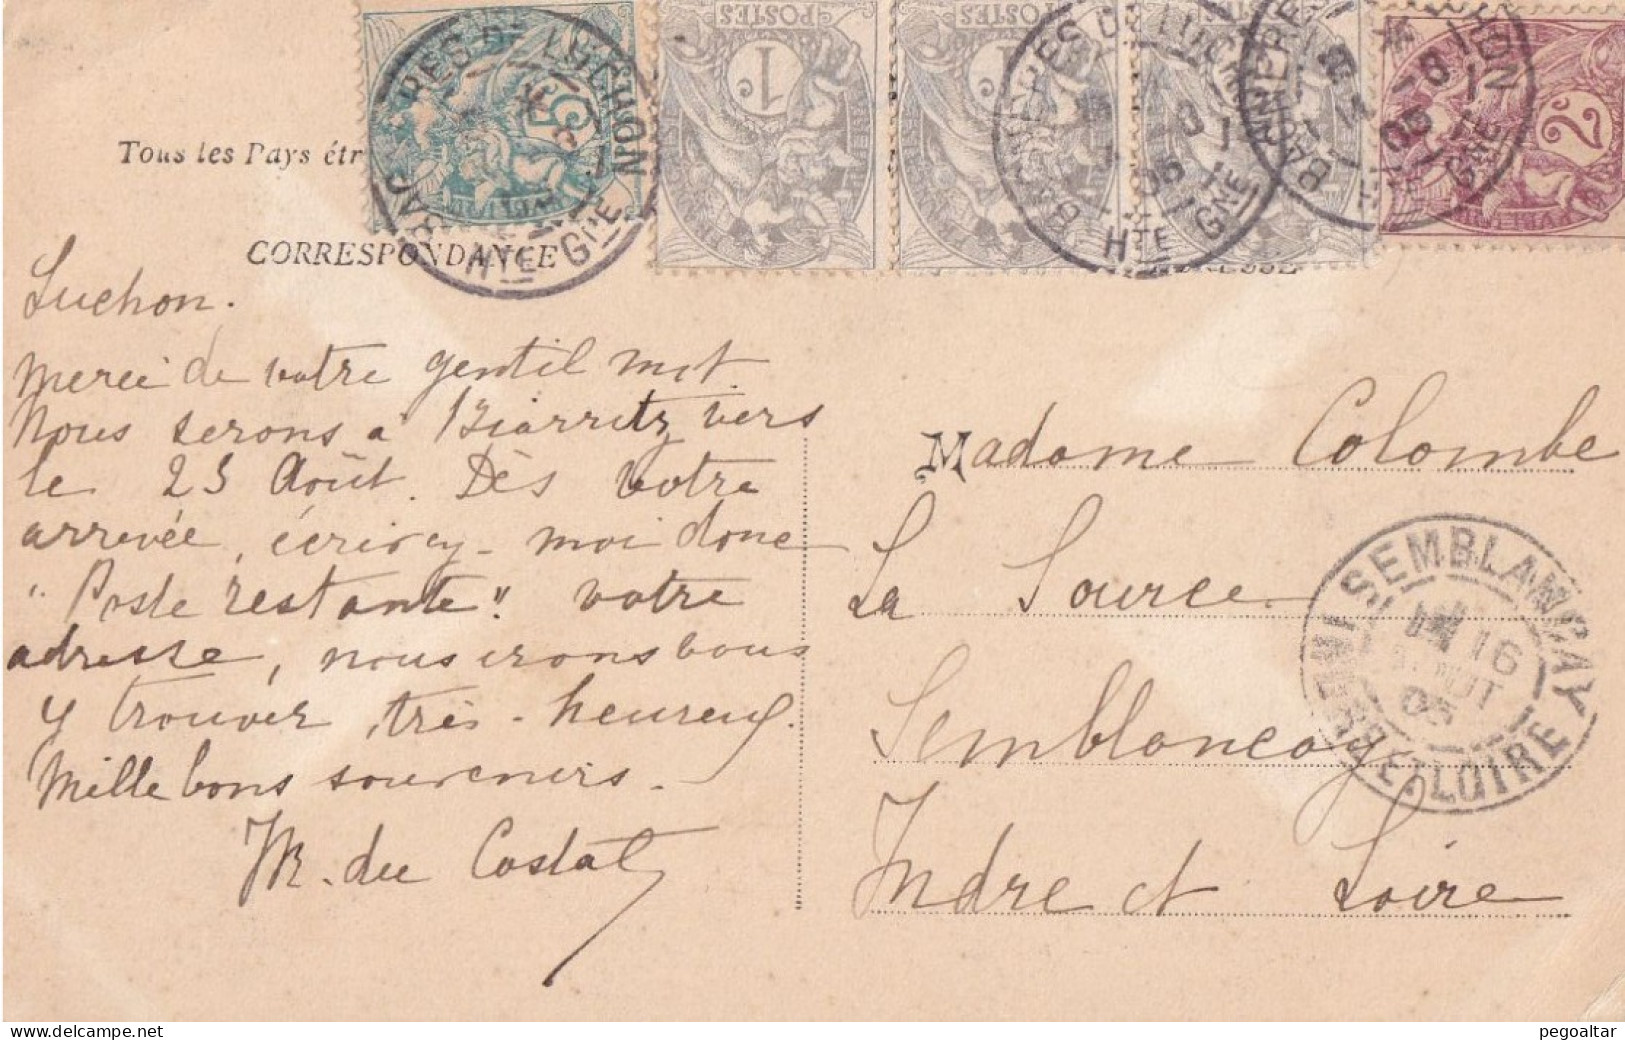 Tous les Pays étr
CORRESPONDANCE
Luchon.
Merci de votre gentil mot.
Nous serons à Biarritz vers
le 25 Août. Dès votre
arrivée, écrivez-moi donc
"Poste restante" votre
adresse, nous irons vous
y trouver très-heureux.
Mille bons souvenirs.
M. du Costal
POSTES
1c
POSTES
1c
POSTES
2c
BAGNÈRES DE LUCHON
HTE GNE
BAGNÈRES DE LUCHON
HTE GNE
BAGNÈRES DE LUCHON
HTE GNE
Madame Colombe
La Source
Semblancay
Indre et Loire
SEMBLANÇAY
16
AOUT
05
INDRE-ET-LOIRE
pegoaltar